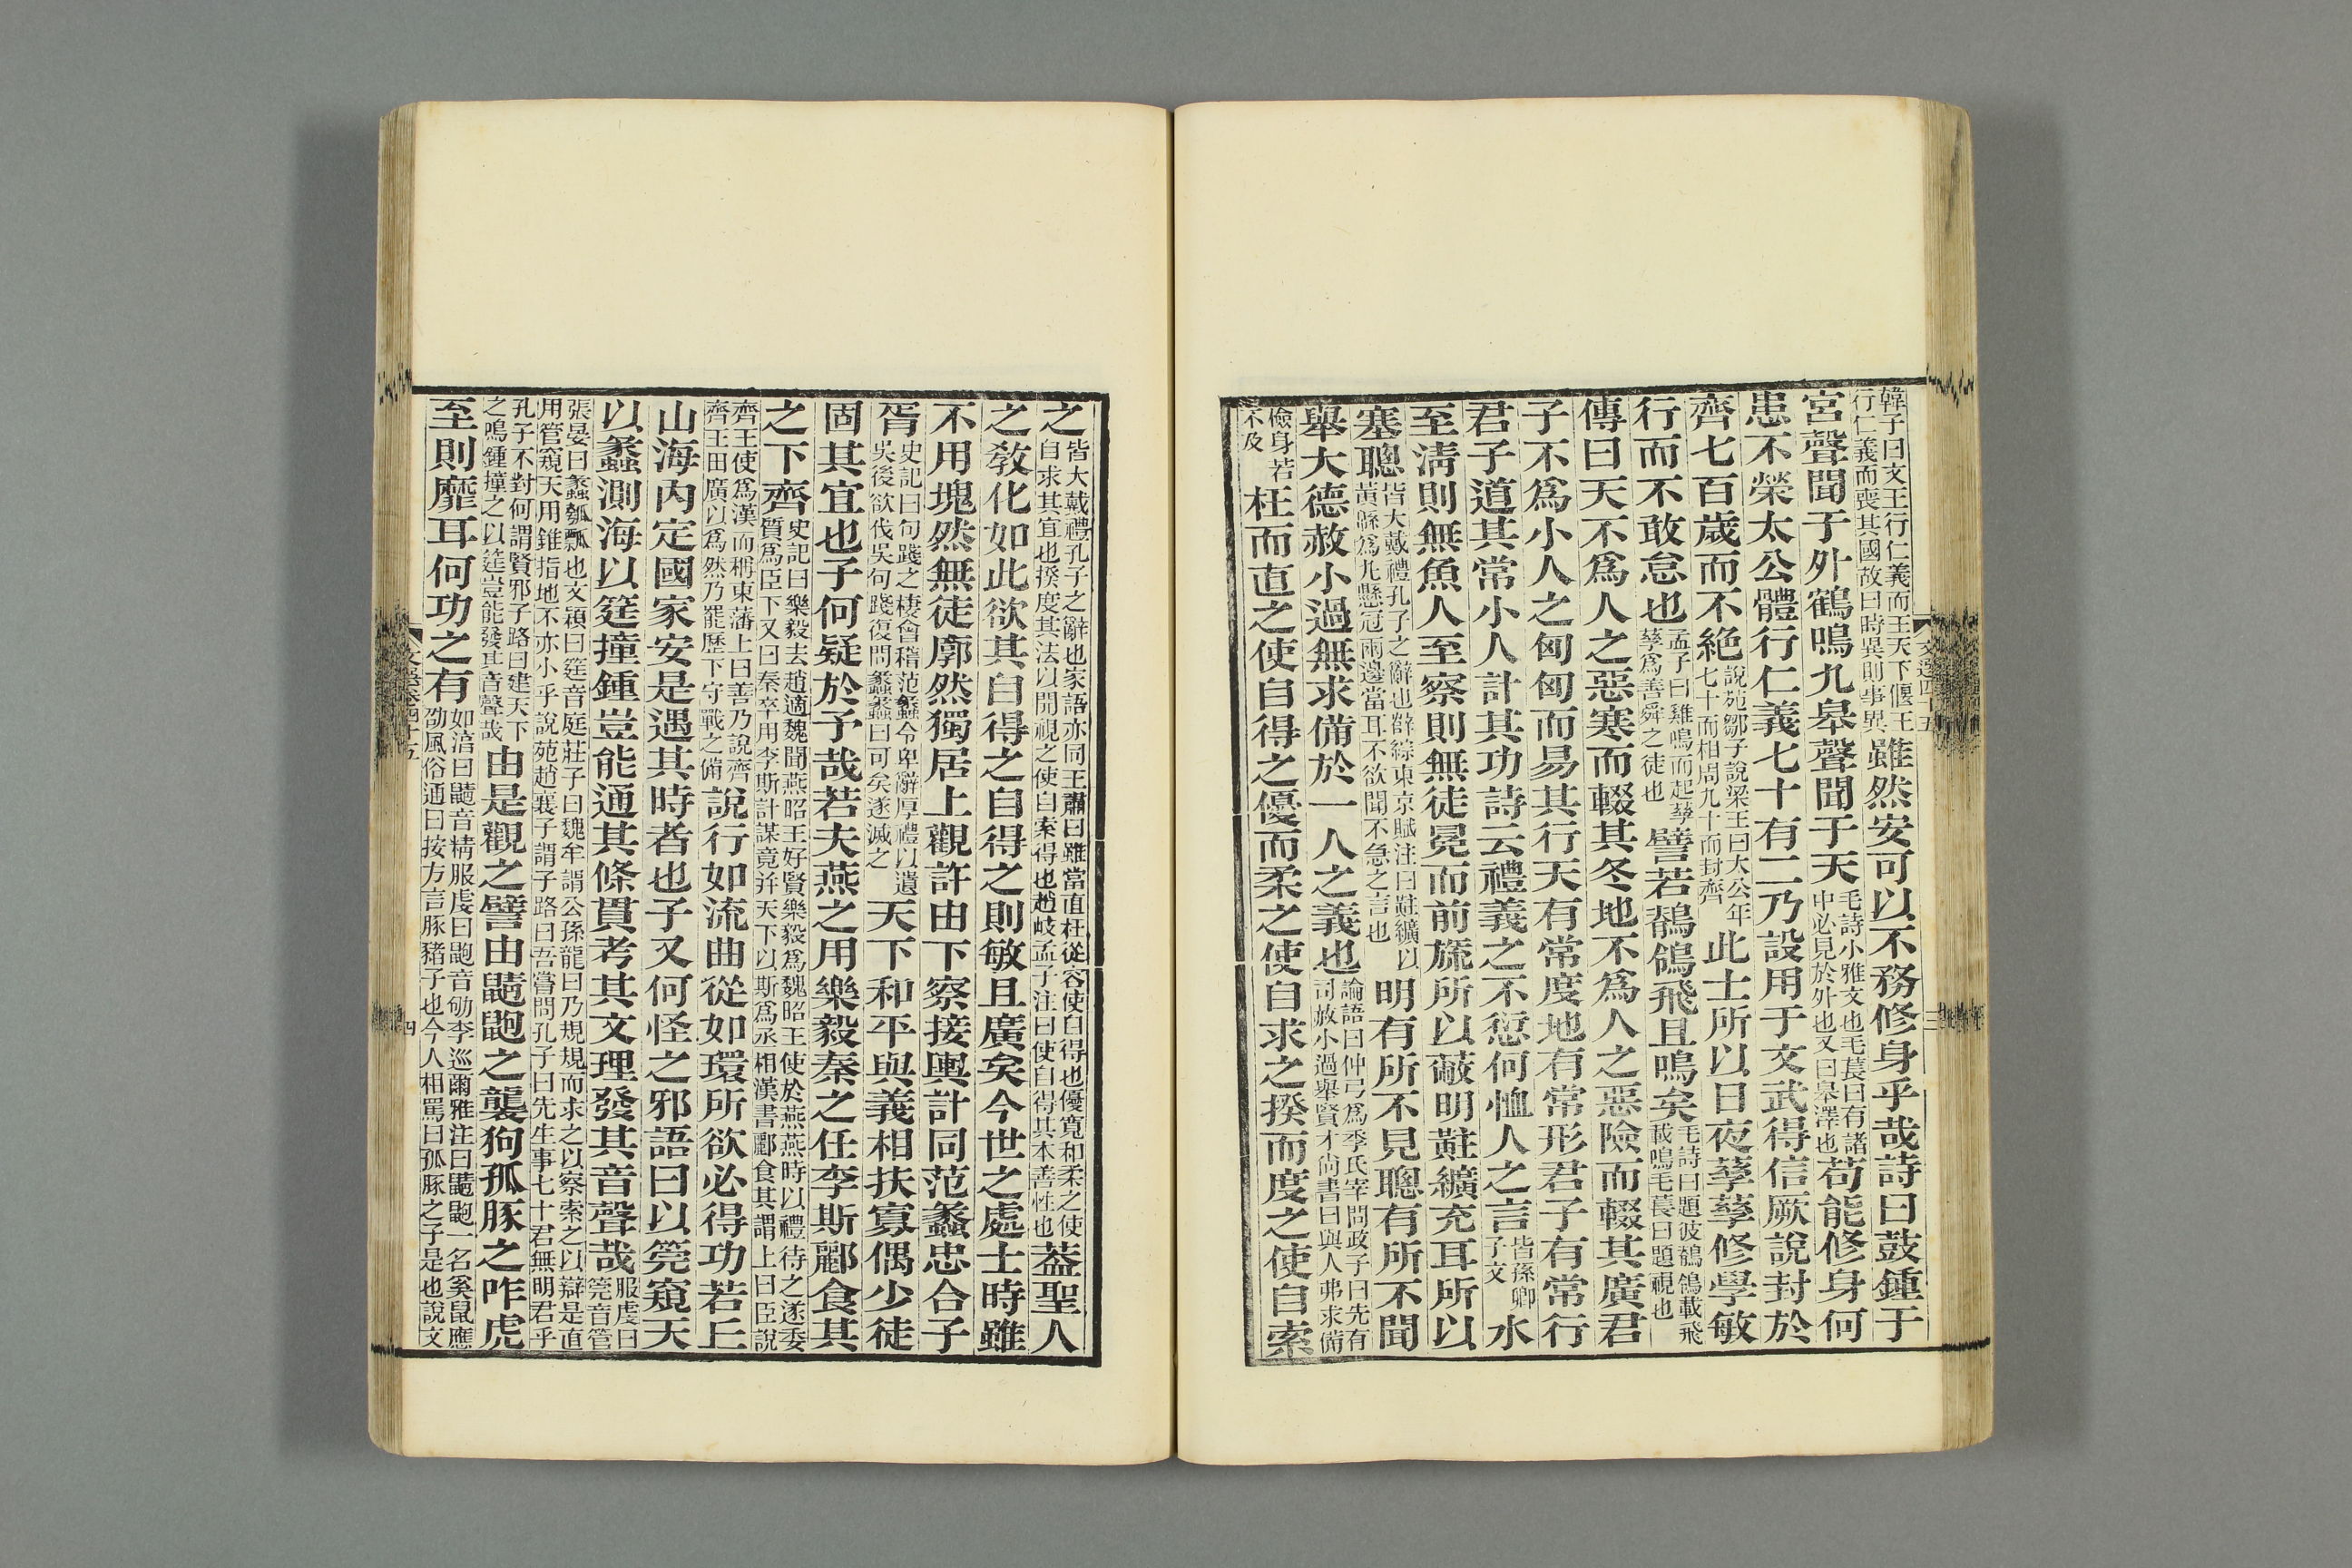 韓子曰文王行仁義而王天下偃王
行仁義而喪其國故曰時異則事異
雖然安可以不務修身乎哉詩曰鼓鍾于
宮聲聞于外鶴鳴九皋聲聞于天
毛詩小雅文也毛萇曰有諸
中必見於外也又曰皋澤也
苟能修身何
患不榮太公體行仁義七十有二乃設用于文武得信厥說封於
齊七百歲而不絕
說苑鄒子說梁王曰太公年
七十而相周九十而封齊
此士所以日夜孳孳修學敏
行而不敢怠也
孟子曰雞鳴而起孳
孳為善舜之徒也
譬若鶺鴒飛且鳴矣
毛詩曰題彼鶺鴒載飛
載鳴毛萇曰題視也
傳曰天不爲人之惡寒而輟其冬地不爲人之惡險而輟其廣君
子不爲小人之匈匈而易其行天有常度地有常形君子有常行
君子道其常小人計其功詩云禮義之不愆何恤人之言
皆孫卿
子文
水
至淸則無魚人至察則無徒冕而前旒所以蔽明黈纊充耳所以
塞聰
皆大戴禮孔子之辭也薛綜東京賦注曰黈纊以
黃緜爲丸懸冠兩邊當耳不欲聞不急之言也
明有所不見聰有所不聞
舉大德赦小過無求備於一人之義也
論語曰仲弓爲季氏宰問政子曰先有
司赦小過舉賢才尙書曰與人弗求備
儉身若
不及
枉而直之使自得之優而柔之使自求之揆而度之使自索
文選四十五
三
之
皆大戴禮孔子之辭也家語亦同王肅曰雖當直枉從容使自得也優寬和柔之使
自求其宜也揆度其法以開視之使自索得也趙岐孟子注曰使自得其本善性也
蓋聖人
之敎化如此欲其自得之自得之則敏且廣矣今世之處士時雖
不用塊然無徒廓然獨居上觀許由下察接輿計同范蠡忠合子
胥
史記曰句踐之棲會稽范蠡令卑辭厚禮以遺
吳後欲伐吳句踐復問蠡蠡曰可矣遂滅之
天下和平與義相扶寡偶少徒
固其宜也子何疑於予哉若夫燕之用樂毅秦之任李斯酈食其
之下齊
史記曰樂毅去趙適魏聞燕昭王好賢樂毅爲魏昭王使於燕燕時以禮待之遂委
質爲臣下又曰秦卒用李斯計謀竟幷天下以斯爲丞相漢書酈食其謂上曰臣說
齊王使爲漢而稱東藩上曰善乃說齊
齊王田廣以爲然乃罷歷下守戰之備
說行如流曲從如環所欲必得功若丘
山海內定國家安是遇其時者也子又何怪之邪語曰以筦窺天
以蠡測海以筳撞鍾豈能通其條貫考其文理發其音聲哉
服虔曰
筦音管
張晏曰蠡瓠瓢也文穎曰筳音庭莊子曰魏牟謂公孫龍曰乃規規而求之以察索之以辯是直
用管窺天用錐指地不亦小乎說苑趙襄子謂子路曰吾嘗問孔子曰先生事七十君無明君乎
孔子不對何謂賢邪子路曰建天下
之鳴鍾撞之以筳豈能發其音聲哉
由是觀之譬由鼱鼩之襲狗孤豚之咋虎
至則靡耳何功之有
如淳曰鼱音精服虔曰鼩音劬李巡爾雅注曰鼱鼩一名奚鼠應
劭風俗通曰按方言豚豬子也今人相罵曰孤豚之子是也說文
文選卷四十五
四